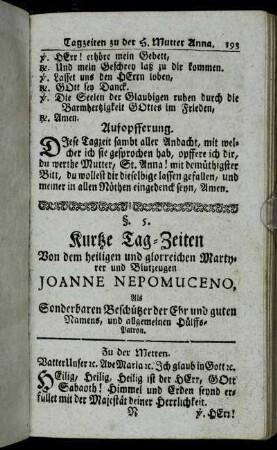 Tagzeiten zu der H. Mutter Anna. 193
℣. HErr! erhöre mein Gebett,
℟. Und mein Geschrey laß zu dir kommen.
℣. Lasset uns den HErrn loben,
℟. GOtt sey Danck.
℣. Die Seelen der Glaubigen ruhen durch die
Barmhertzigkeit GOttes im Frieden,
℟. Amen.
Aufopfferung.
DIese Tagzeit sambt aller Andacht, mit wel-
cher ich sie gesprochen hab, opffere ich dir,
du werthe Mutter, St. Anna! mit demüthigster
Bitt, du wollest dir dieselbige lassen gefallen, und
meiner in allen Nöthen eingedenck seyn, Amen.
§. 5.
Kurtze Tag-Zeiten
Von dem heiligen und glorreichen Marty-
rer und Blutzeugen
JOANNE NEPOMUCENO,
Als
Sonderbaren Beschützer der Ehr und guten
Namens, und allgemeinen Hülffs-
Patron.
Zu der Metten.
VatterUnser ꝛc. Ave Maria ꝛc. Ich glaub in Gott ꝛc.
HEilig, Heilig, Heilig ist der HErr, GOtt
Sabaoth! Himmel und Erden seynd er-
füllet mit der Majestät deiner Herrlichkeit.
N ℣. HEr!